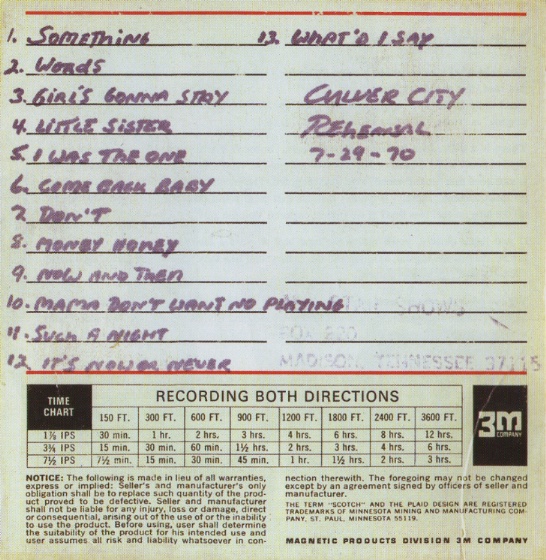 1. SOMETHING
2. WORDS
3. GIRL'S GONNA STAY
4. LITTLE SISTER
5. I WAS THE ONE
6. COME BACK BABY
7. DON'T
8. MONEY HONEY
9. NOW AND THEN
10. MAMA DON'T WANT NO PLAYING
11. SUCH A NIGHT
12. IT'S NOW OR NEVER
13. WHAT'D I SAY
CULVER CITY
REHEARSAL
7-29-70
MADISON, TENNESSEE 37115
TIME CHART
RECORDING BOTH DIRECTIONS
150 FT. 300 FT. 600 FT. 900 FT. 1200 FT. 1800 FT. 2400 FT. 3600 FT.
1⅞ IPS 30 min. 1 hr. 2 hrs. 3 hrs. 4 hrs. 6 hrs. 8 hrs. 12 hrs.
3¾ IPS 15 min. 30 min. 60 min. 1½ hrs. 2 hrs. 3 hrs. 4 hrs. 6 hrs.
7½ IPS 7½ min. 15 min. 30 min. 45 min. 1 hr. 1½ hrs. 2 hrs. 3 hrs.
3M
COMPANY
NOTICE: The following is made in lieu of all warranties,
express or implied: Seller's and manufacturer's only
obligation shall be to replace such quantity of the prod-
uct proved to be defective. Seller and manufacturer
shall not be liable for any injury, loss or damage, direct
or consequential, arising out of the use of or the inability
to use the product. Before using, user shall determine
the suitability of the product for his intended use and
user assumes all risk and liability whatsoever in con-
nection therewith. The foregoing may not be changed
except by an agreement signed by officers of seller and
manufacturer.
THE TERM "SCOTCH" AND THE PLAID DESIGN ARE REGISTERED
TRADEMARKS OF MINNESOTA MINING AND MANUFACTURING COM-
PANY, ST. PAUL, MINNESOTA 55119.
MAGNETIC PRODUCTS DIVISION 3M COMPANY